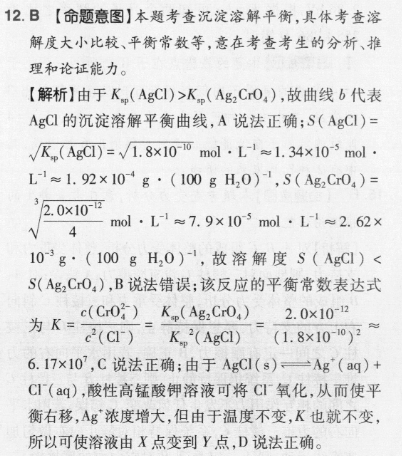 12. B 【命题意图】本题考查沉淀溶解平衡,具体考查溶
解度大小比较、平衡常数等,意在考查考生的分析、推
理和论证能力。
【解析】由于 Ksp(AgCl)>Ksp(Ag₂CrO₄),故曲线 b 代表
AgCl 的沉淀溶解平衡曲线,A 说法正确;S(AgCl)=
√Ksp(AgCl)=√1.8×10⁻¹⁰ mol·L⁻¹≈1.34×10⁻⁵ mol·
L⁻¹≈1.92×10⁻⁴ g·(100 g H₂O)⁻¹,S(Ag₂CrO₄)=
∛(2.0×10⁻¹²/4) mol·L⁻¹≈7.9×10⁻⁵ mol·L⁻¹≈2.62×
10⁻³ g·(100 g H₂O)⁻¹,故溶解度 S(AgCl)<
S(Ag₂CrO₄),B 说法错误;该反应的平衡常数表达式
为 K=c(CrO₄²⁻)/c²(Cl⁻)=Ksp(Ag₂CrO₄)/Ksp²(AgCl)=2.0×10⁻¹²/(1.8×10⁻¹⁰)²≈
6.17×10⁷,C 说法正确;由于 AgCl(s)⇌Ag⁺(aq)+
Cl⁻(aq),酸性高锰酸钾溶液可将 Cl⁻氧化,从而使平
衡右移,Ag⁺浓度增大,但由于温度不变,K 也就不变,
所以可使溶液由 X 点变到 Y 点,D 说法正确。